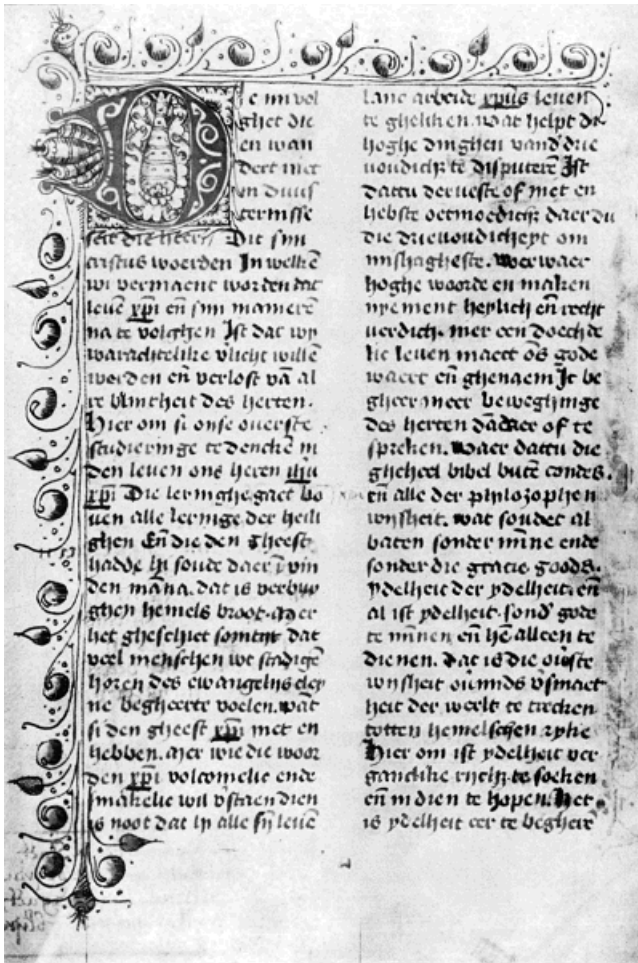 Die mi vol
ghet die
en wan
dert niet
in duus
ternisse
seit die heer. Dit sijn
cristus woerden In welkē
wi vermaent worden dat
leuen xpi eñ sijn manierē
na te volghen Ist dat wy
warachtelike vlicht willē
worden eñ verlost vā al
re blintheit des herten.
Hier om si onse ouerste
studieringe te denckē in
den leuen ons heren ihu
xpi Die leringhe gaet bo
uen alle leringe der heili
ghen Eñ die den gheest
hadde hi soude daer ī vin
den māna. dat is verbor
ghen hemels broot. Mer
het ghesciet somtijt dat
veel menschen wt stadigē
horen des ewangelijs cley
ne begheerte voelen. wāt
si den gheest xpi niet en
hebben. Mer wie die woor
den xpi volcomelic ende
smakelic wil v̄staen dien
is noot dat hi alle sijn leuē
lanc arbeide xpūs leuen
te gheliken wat helpt di
hoghe dinghen vand' drie
voudich' te disputerē Ist
dattu derueste of niet en
hebste oetmoedich' daer du
die drieuoudicheyt om
mishagheste. Voerwaer
hoghe woorde en maken
nyement heylich eñ recht
uerdich. mer een doechde
lic leuen maect ōs gode
waert eñ ghenaem Ic be
gheer meer beweghinge
des herten dā daer of te
spreken. Waer dattu die
gheheel bibel butē condes.
eñ alle der philozophen
wijsheit. wat soudet al
baten sonder mīne ende
sonder die gracie goods.
ydelheit der ydelheit. eñ
al ist ydelheit. sond' gode
te mīnen eñ hē alleen te
dienen. Dat is die ouste
wijsheit ou mids v̄smaet
heit der werlt te trecken
totten hemelschen ryke
Hier om ist ydelheit ver
ganclike rijch' te soeken
eñ in dien te hopen. Het
is ydelheit eer te begherē